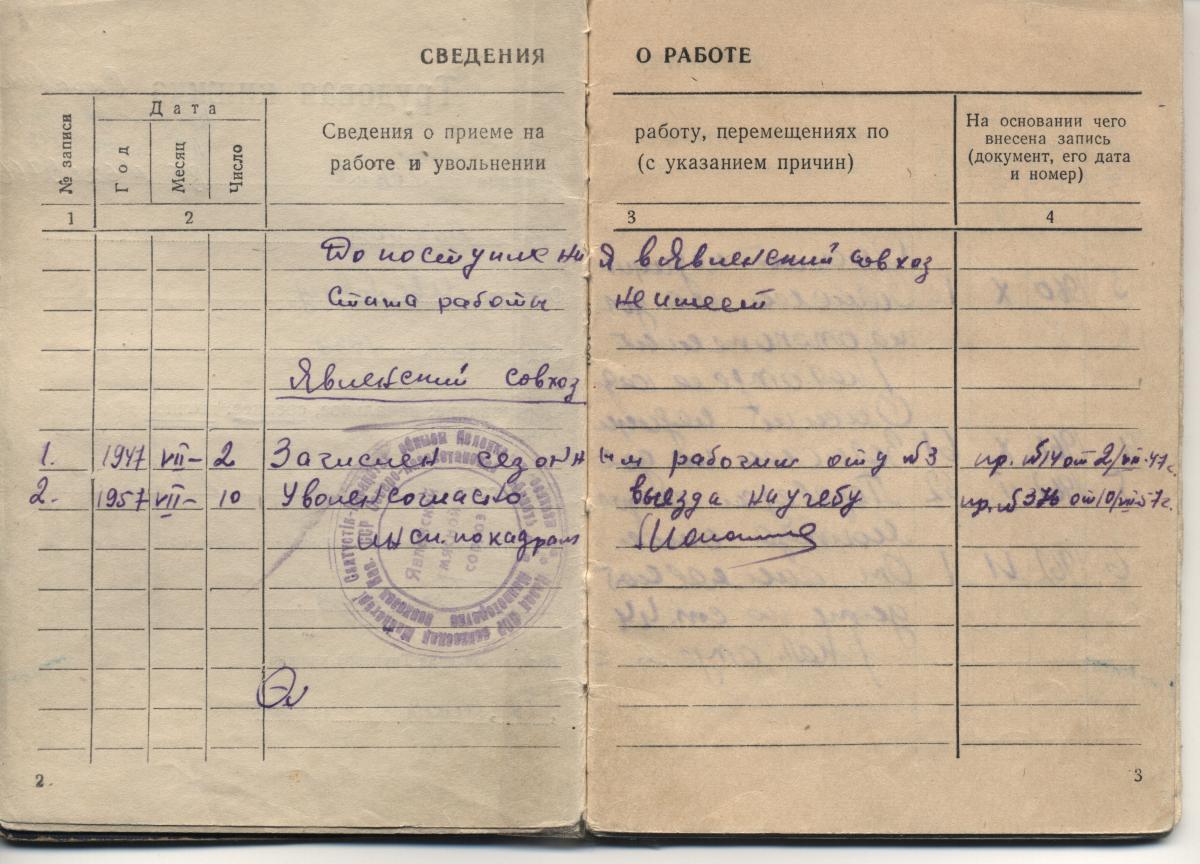 СВЕДЕНИЯ О РАБОТЕ
№ записи
Дата
Год
Месяц
Число
Сведения о приеме на работу, перемещениях по
работе и увольнении (с указанием причин)
На основании чего
внесена запись
(документ, его дата
и номер)
1 2 3 4
До поступления в Явленский совхоз
Стажа работы не имеет
Явленский совхоз
1. 1947 VII 2 Зачислен сезонным рабочим отд №3 пр. №14 от 2/VII-47г.
2. 1957 VII 10 Уволен согласно выезда на учебу пр. №376 от 10/VII 57г.
Инсп. по кадрам
2
3